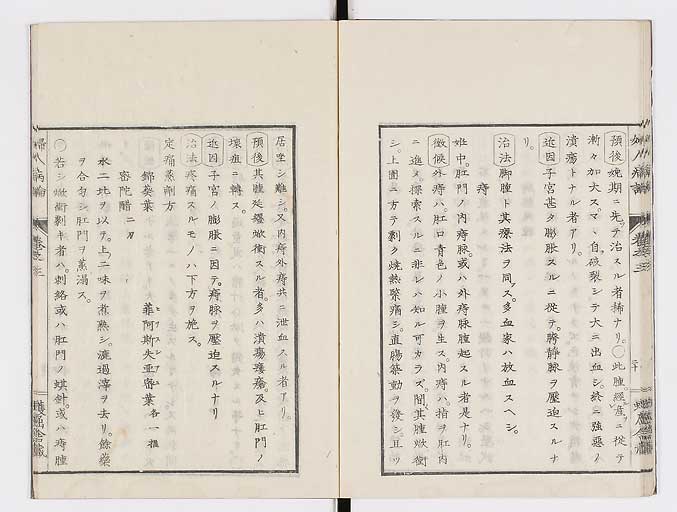 預後娩期ニ先テ治スル者稀ナリ。〇此腫經産ニ從テ
漸々加大ス。マヽ自破裂シテ大ニ出血シ、終ニ強惡ノ
潰瘍トナル者アリ。
近因子宮甚タ膨脹スルニ從テ、脐静脉ヲ壓迫スルナ
リ。
治法脚腫ト其療法ヲ同ス。多血家ハ放血スヘシ。
痔
妊中、肛門ノ内痔脉、或ハ外痔脉腫起スル者是ナリ。
徴候外痔ハ、肛口青色ノ小腫ヲ生ス。内痔ハ指ヲ肛内
ニ進メ、探索スルニ非レハ知ル可カラズ。間其腫焮衝
シ、上圊ニ方テ剥ク焼熱緊痛シ、直腸築動ヲ發シ、且ツ
居坐シ難シ。又内痔外痔共ニ泄血スル者アリ。
預後其腫延蔓焮衝スル者、多ハ潰瘍瘻瘡及ヒ肛門ノ
壊疽ニ轉ス。
近因子宮ノ膨脹ニ因テ、痔脉ヲ壓迫スルナリ
治法疼痛スルモノハ下方ヲ施ス。
定痛蒸劑方
錦葵葉
菲阿斯失亜密葉各一握
密陀醋二刃
水二比ヲ以テ、上二味ヲ煮熟シ、漉過滓ヲ去リ、餘藥
ヲ合匀シ、肛門ヲ薫溻ス。
〇若シ焮衝劇キ者ハ、刺絡或ハ肛門ノ蜞針、或ハ痔腫
婦人病論
卷之三